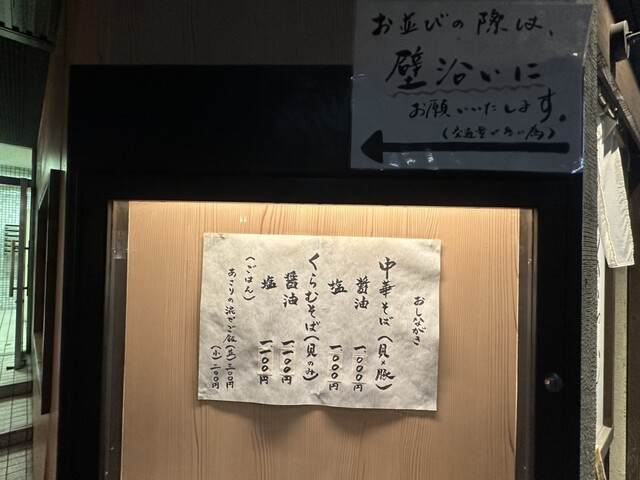 お並びの際は、
壁沿いに
お願いいたします。
(交通量が多い為)
おしながき
中華そば(貝×豚)
醤油 一〇〇〇円
塩 一〇〇〇円
くらむそば(貝のみ)
醤油 一一〇〇円
塩 一一〇〇円
(ごはん)
あさりの混ぜご飯(並)三〇〇円
(小)二〇〇円